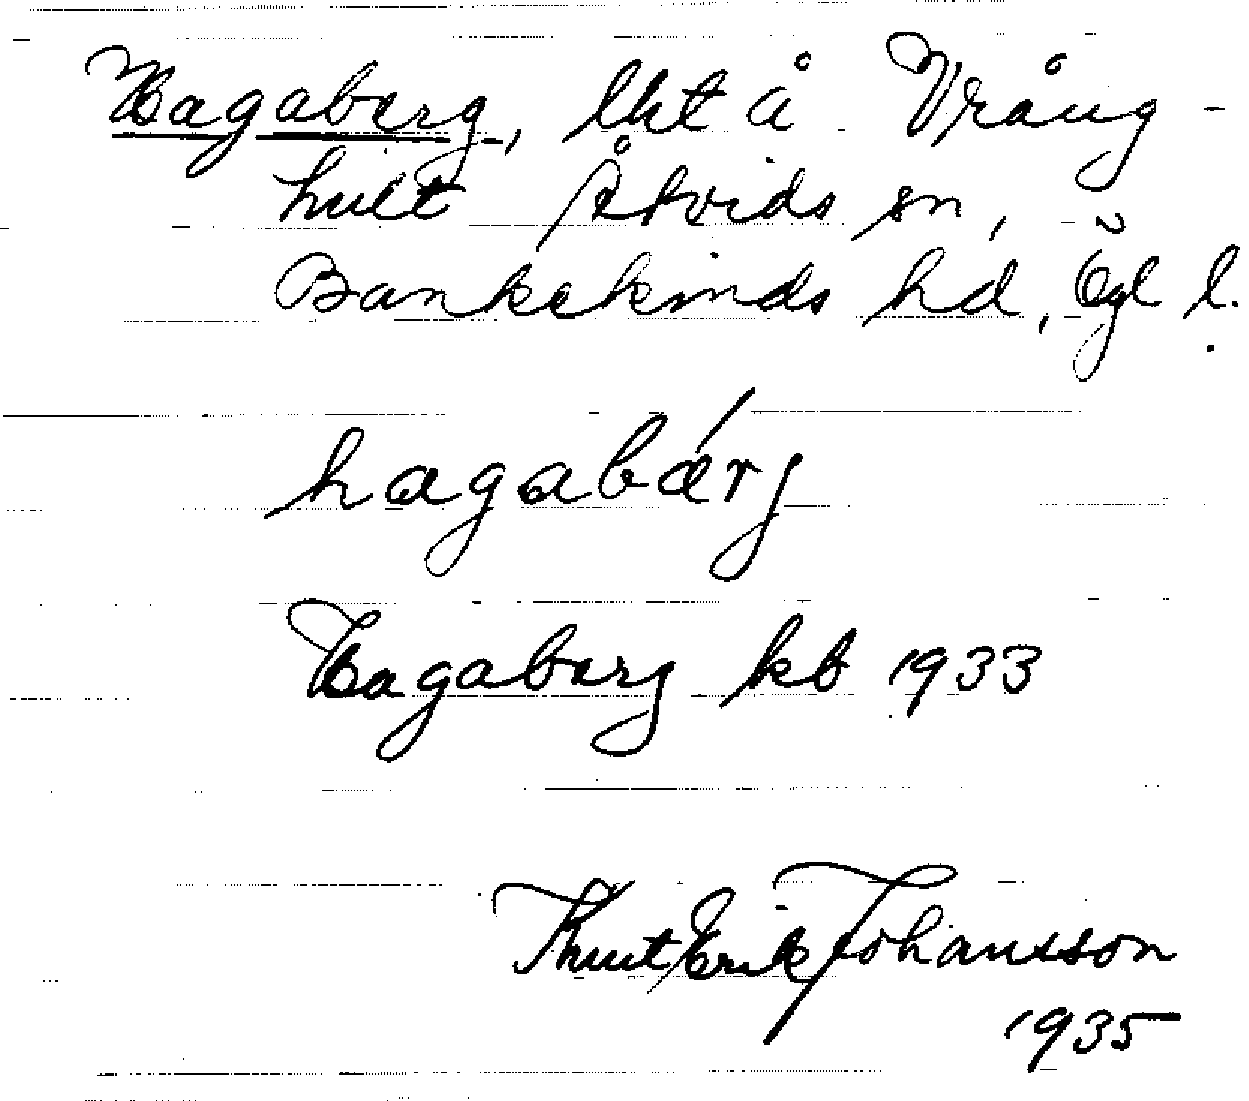 Hagaberg, lht å Vrång-
hult Åtvids sn,
Bankekinds hd, Ögl l.
hagabærj
Hagaberg kb 1933
Knut Erik Johansson
1935